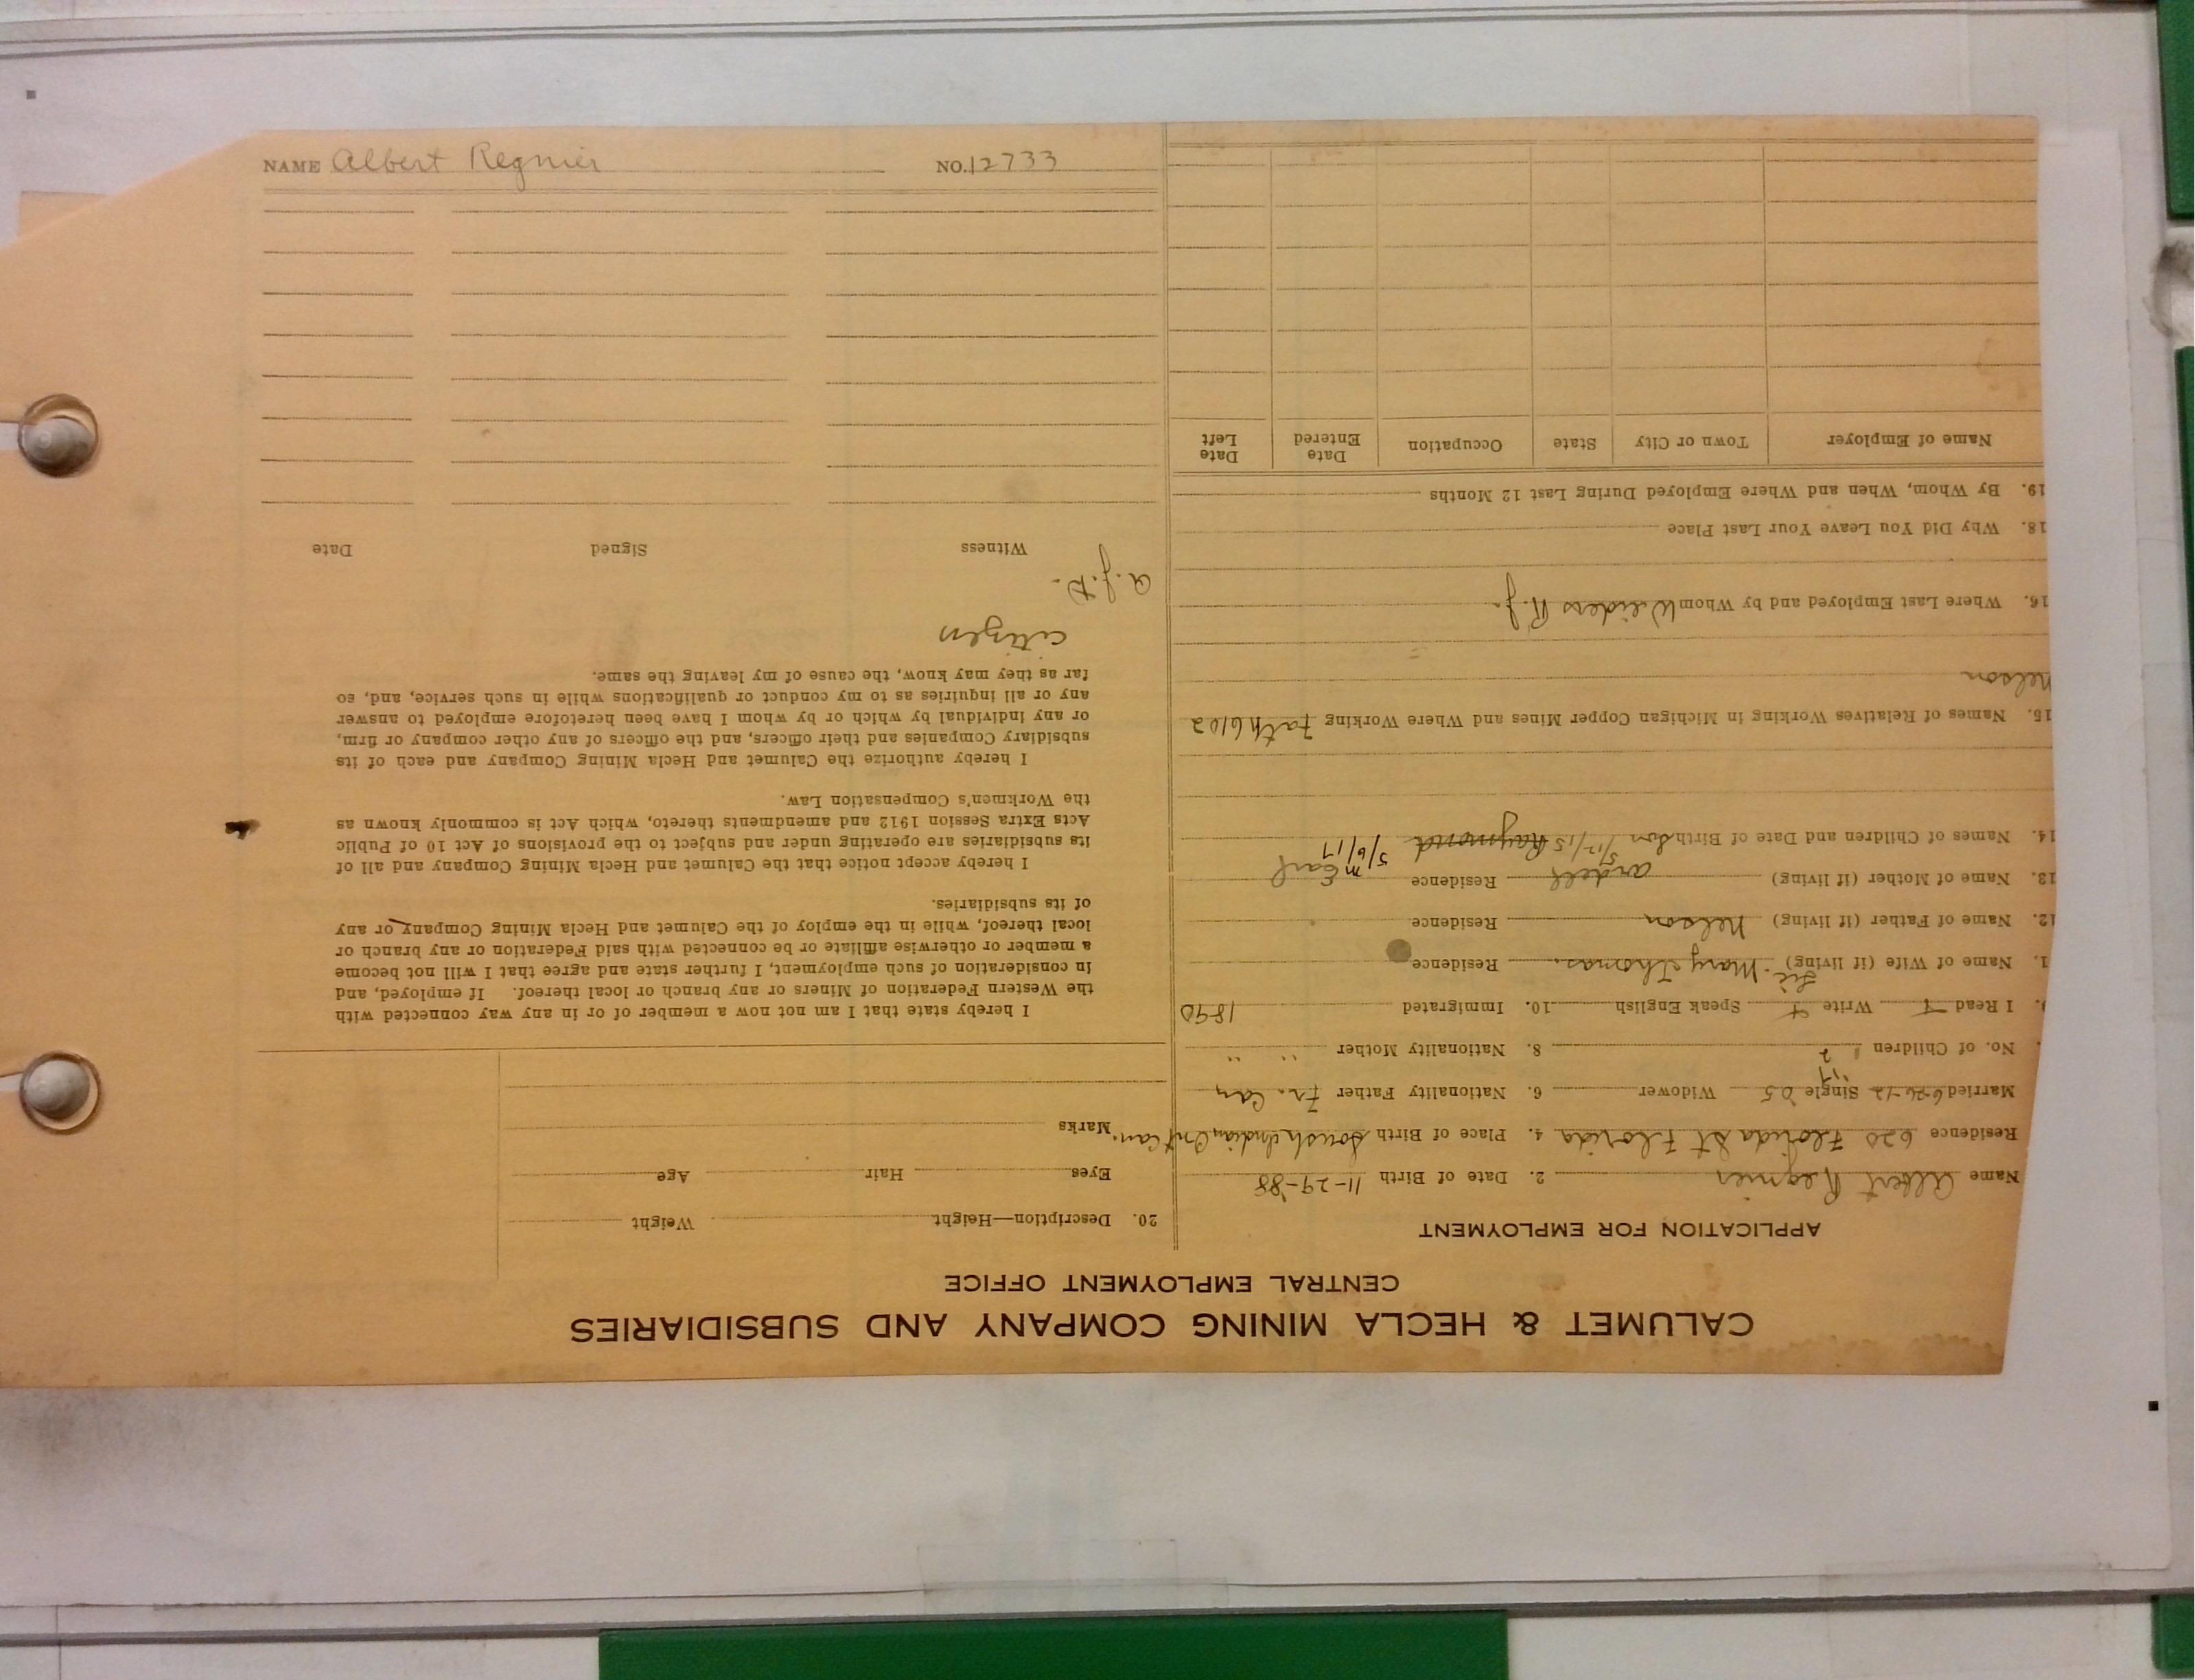 NAME Albert Regnier NO. 12733
CALUMET & HECLA MINING COMPANY AND SUBSIDIARIES
CENTRAL EMPLOYMENT OFFICE
APPLICATION FOR EMPLOYMENT
Name Albert Regnier 2. Date of Birth 11-29-88
Residence 620 Florida St Florida 4. Place of Birth South Indian, Ont Can.
Married 6-26-12 Single Widower 6. Nationality Father Fr. Can
No. of Children 2 8. Nationality Mother " "
9. I Read Write Speak English 10. Immigrated 1890
1. Name of Wife (if living) Mary Thomas. Residence
12. Name of Father (if living) Nelson Residence
13. Name of Mother (if living) Residence
Ardell m Earl
14. Names of Children and Date of Birth son 5/12/15 Raymond 5/6/17
15. Names of Relatives Working in Michigan Copper Mines and Where Working Fath 6102
Nelson
16. Where Last Employed and by Whom A.J.
18. Why Did You Leave Your Last Place
19. By Whom, When and Where Employed During Last 12 Months
Name of Employer Town or City State Occupation Date Entered Date Left
20. Description—Height Weight
Eyes Hair Age
Marks
I hereby state that I am not now a member of or in any way connected with
the Western Federation of Miners or any branch or local thereof. If employed, and
in consideration of such employment, I further state and agree that I will not become
a member or otherwise affiliate or be connected with said Federation or any branch or
local thereof, while in the employ of the Calumet and Hecla Mining Company or any
of its subsidiaries.
I hereby accept notice that the Calumet and Hecla Mining Company and all of
its subsidiaries are operating under and subject to the provisions of Act 10 of Public
Acts Extra Session 1912 and amendments thereto, which Act is commonly known as
the Workmen's Compensation Law.
I hereby authorize the Calumet and Hecla Mining Company and each of its
subsidiary Companies and their officers, and the officers of any other company or firm,
or any individual by which or by whom I have been heretofore employed to answer
any or all inquiries as to my conduct or qualifications while in such service, and, so
far as they may know, the cause of my leaving the same.
citizen
Witness Signed Date